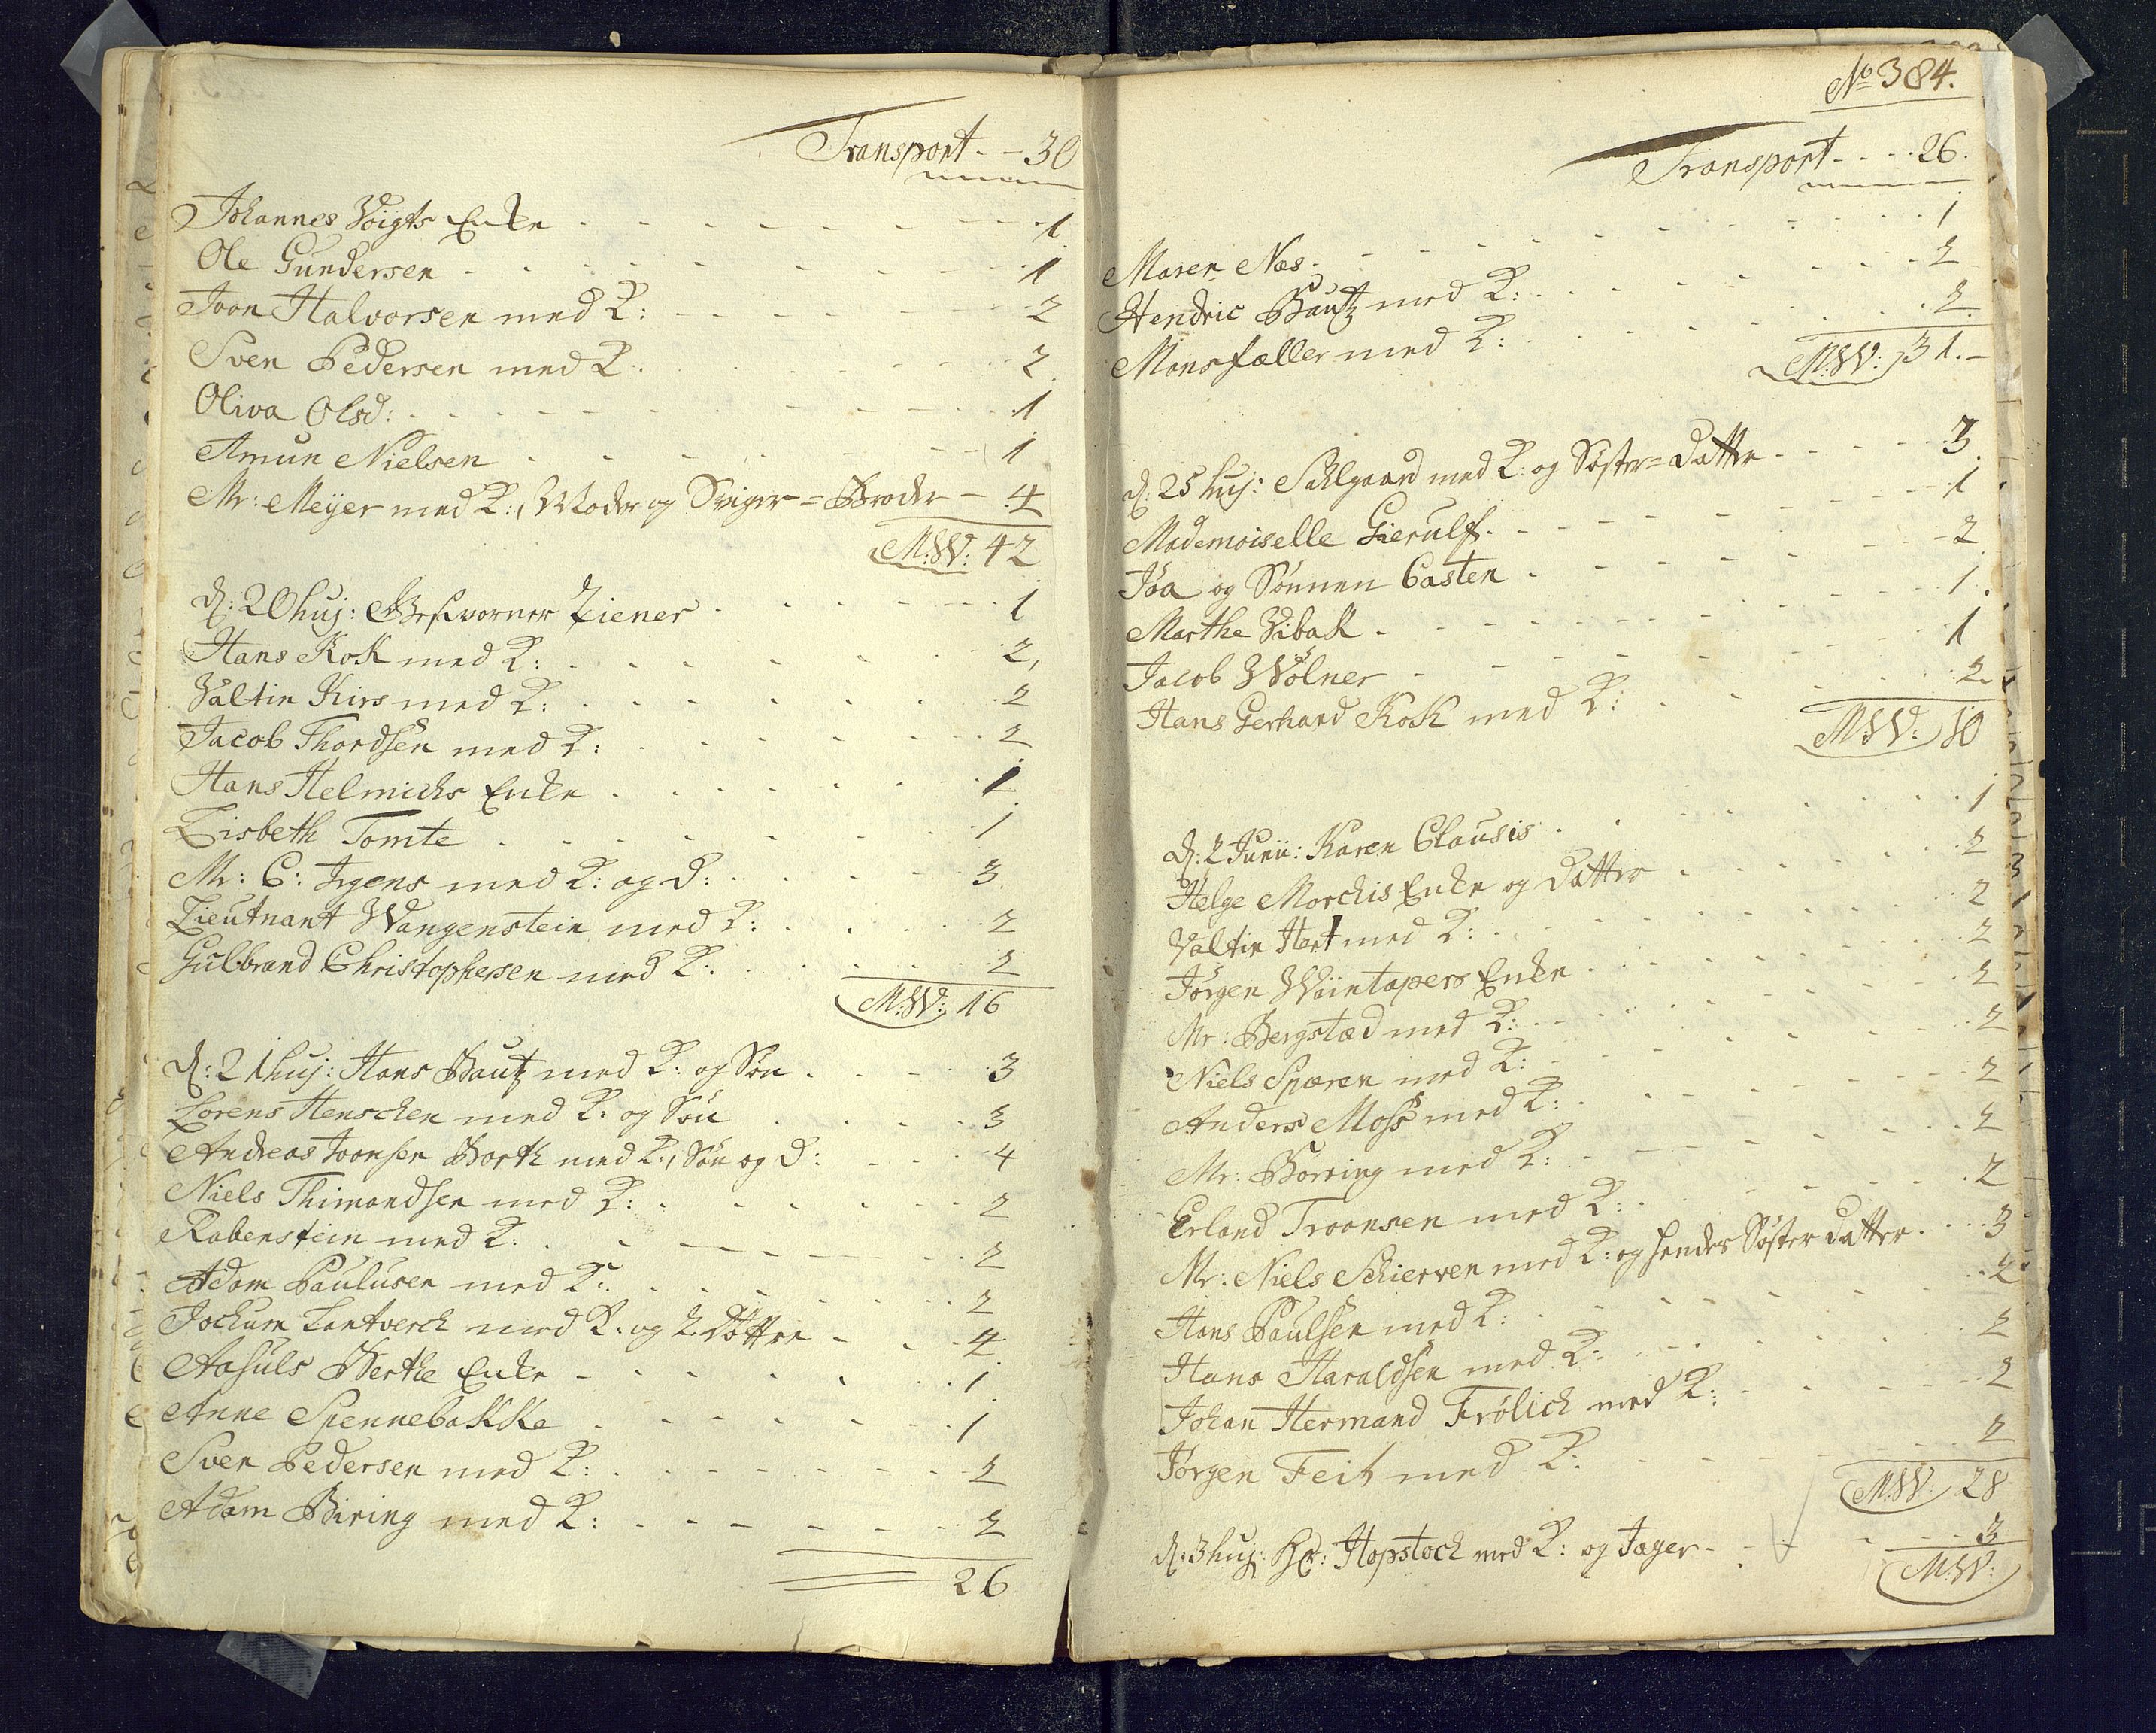 Transport - - 30
Johannes Voigts Enke - - - 1
Ole Gundersen - - - 1
Joon Halvorsen med K: - - - 2
Sven Pedersen med K: - - - 2
Oliva Olsd: - - - 1
Amun Nielsen - - - 1
Mr: Meÿer med K:, Moder og Sviger=Broder - 4
M:W: 42
d: 20 huj: Geschworner Ziener - - - 1
Hans Kok med K: - - - 2,
Valtin Kirs med K: - - - 2
Jacob Thordsen med K: - - - 2
Hans Helmichs Enke - - - 1
Lisbeth Tomte - - - 1
Mr: C: Irgens med K: og D: - - - 3
Lieutnant Wangenstein med K: - - - 2
Gulbrand Christophersen med K: - - - 2
M:W: 16
d: 21 huj: Hans Bautz med K: og Søn - - - 3
Lorens Henschen med K: og Søn - - - 3
Andreas Joonsen Barth med K:, Søn og D: - - - 4
Niels Thimandsen med K: - - - 2
Rabenstein med K: - - - 2
Adam Paulusen med K: - - - 2
Jochum Lantverch med K: og 2 Døttre - - - 4
Aasuls Berthe Enke - - - 1
Anne Spennebakke - - - 1
Sven Pedersen med K: - - - 2
Adam Biring med K: - - - 2
26
No 384.
Transport - - - 26.
Maren Næs - - - 1
Hendric Bautz med K: - - - 2
Mansfæller med K: - - - 2
M:W: 31. -
d: 25 huj: Sahlgaard med K: og Søster=Datter - - - 3
Mademoiselle Gierulf - - - 1
Jøa og Sønnen Casten - - - 2
Marthe Vibak - - - 1.
Jacob Wølner - - - 1
Hans Gerhard Kok med K: - - - 2
M:W: 10
d: 2 Junii: Karen Clausis - - - 1
Helge Morchis Enke og Datter - - - 2
Valtin Hert med K: - - - 2
Jørgen Wäintapers Enke - - - 2
Mr: Bergstæd med K: - - - 2
Niels Sparen med K: - - - 2
Anders Moss med K: - - - 2
Mr: Borring med K: - - - 2
Erland Troonsen med K: - - - 2
Mr: Niels Schierven med K: og hendes Søster datter - - - 3
Hans Paulsen med K: - - - 2
Hans Haraldsen med K: - - - 2
Johan Hermand Frølich med K: - - - 2
Jørgen Feit med K: - - - 2
M:W: 28
d: 3 huj: Hr: Hopstock med K: og Jæger - - - 3
M:W: